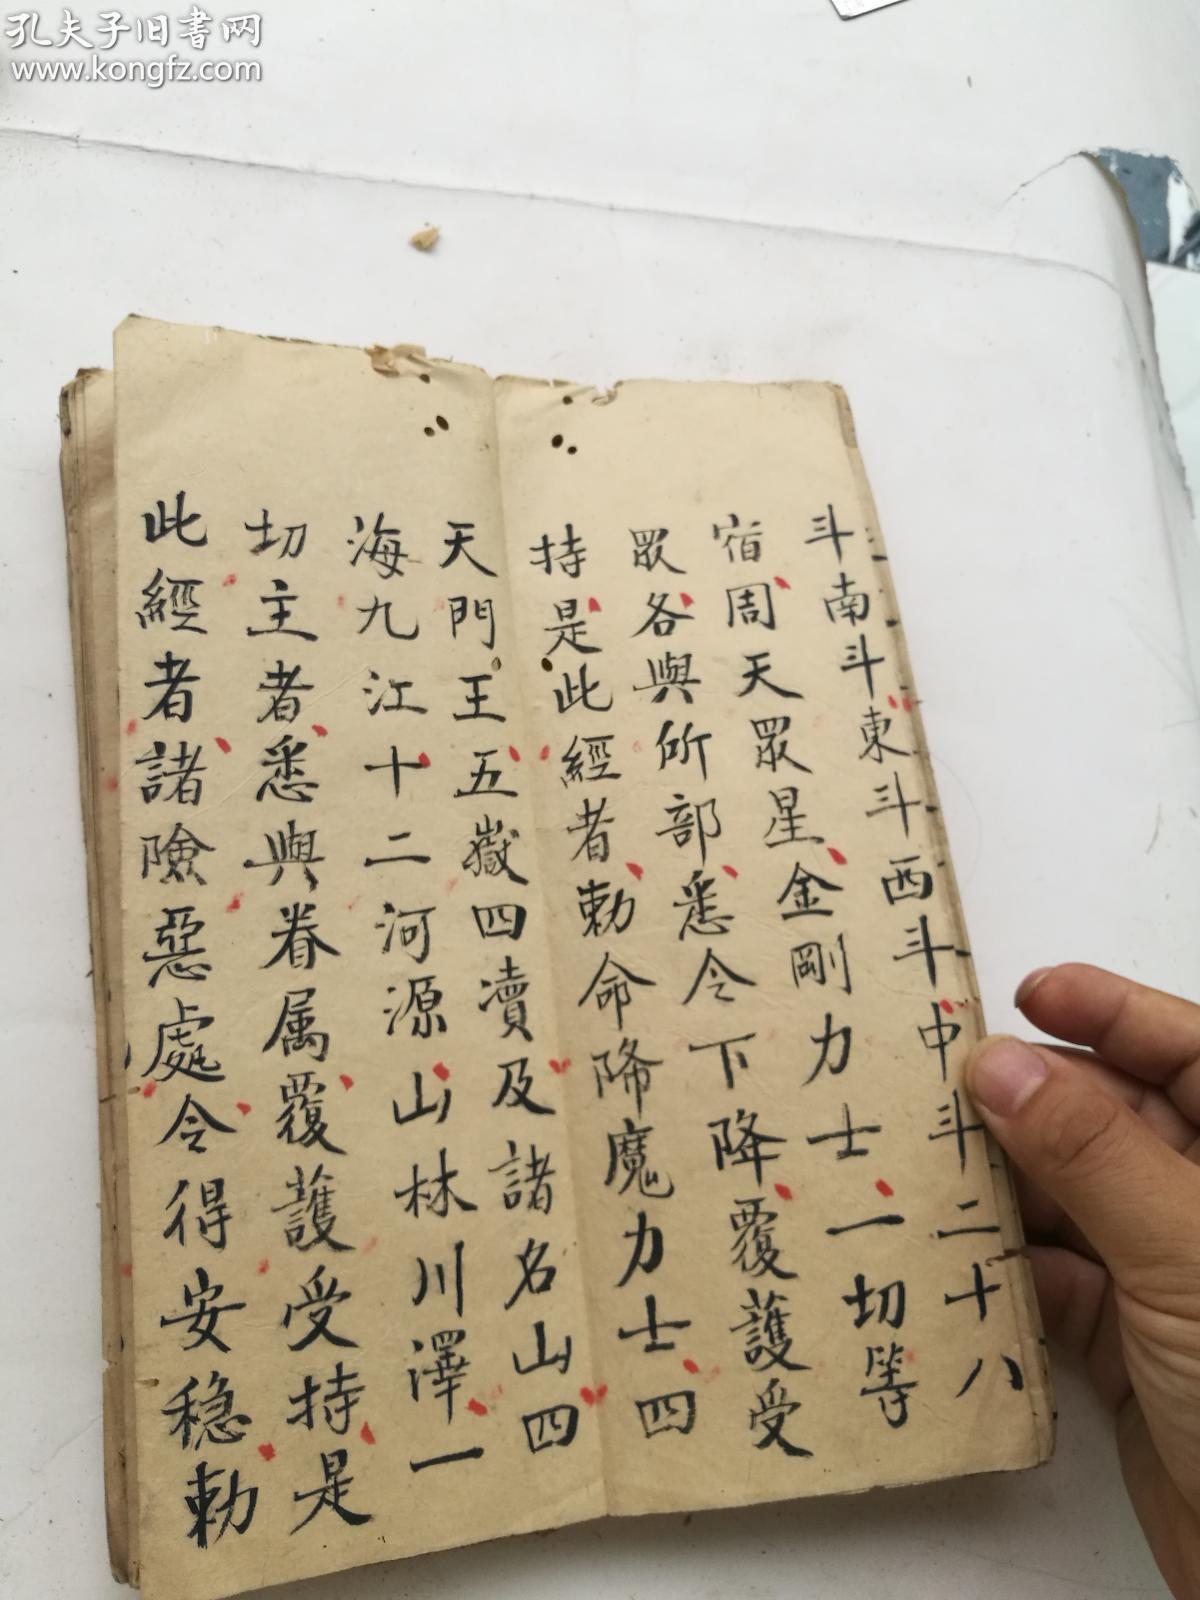 孔夫子旧書网
www.kongfz.com
斗南斗東斗西斗中斗二十八
宿周天眾星金剛力士一切等
眾各與所部悉令下降覆護受
持是此經者勅命降魔力士四
天門王五嶽四瀆及諸名山四
海九江十二河源山林川澤一
切主者悉與眷属覆護受持是
此經者諸險惡處令得安穏勅